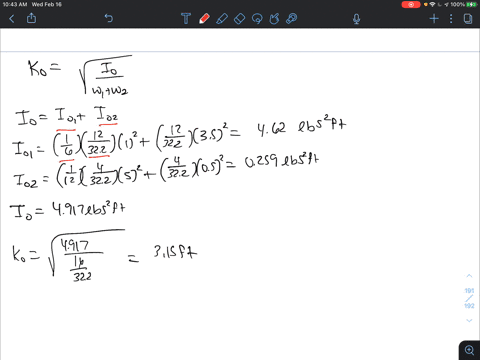 10:43 AM Wed Feb 16
100%
K0 = √(I0 / (w1+w2))
I0 = I01 + I02
I01 = (1/6)(12/32.2)(1)² + (12/32.2)(3.5)² = 4.62 lbs²ft
I02 = (1/12)(4/32.2)(5)² + (4/32.2)(0.5)² = 0.259 lbs²ft
I0 = 4.917 lbs²ft
K0 = √(4.917 / (16/322)) = 3.15ft
181
/
192